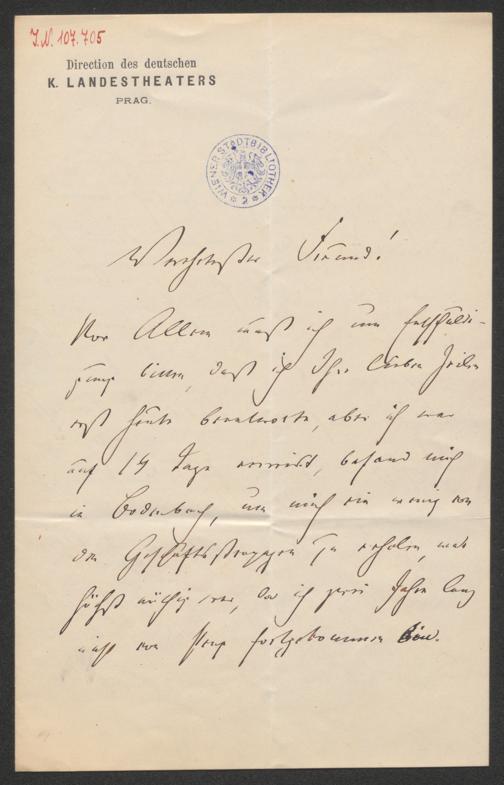 J.N. 107.705
Direction des deutschen
K. LANDESTHEATERS
PRAG.
WIENER STADTBIBLIOTHEK
Werthester Freund!
Vor Allem muß ich um Entschuldi-
gung bitten, daß ich Ihre lieben Zeilen
erst heute beantworte, aber ich war
auf 14 Tage verreist, befand mich
in Bodenbach, um mich ein wenig von
den Geschäftsstrapazen zu erholen, was
höchst nöthig war, da ich zwei Jahre lang
nicht von Prag fortgekommen bin.